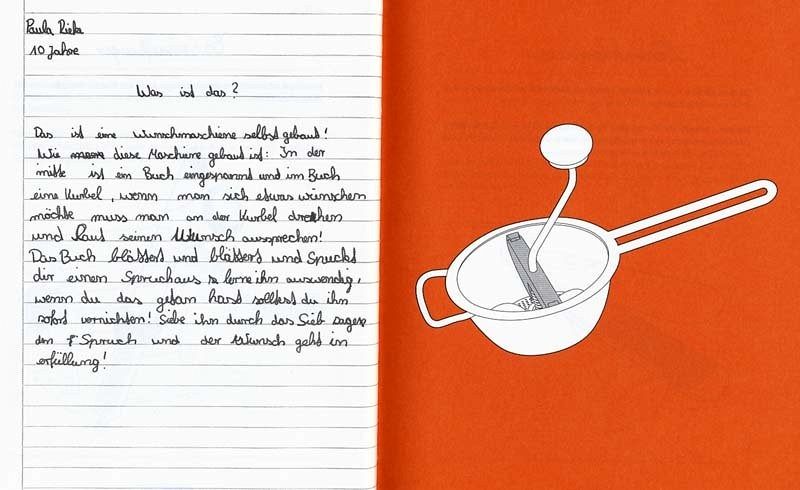 Paula Rieka
10 Jahre
Was ist das?
Das ist eine wunschmaschiene selbst gebaut!
Wie diese Maschiene gebaut ist: In der
mitte ist ein Buch eingespannt und im Buch
eine Kurbel, wenn man sich etwas wünschen
möchte muss man an der Kurbel drehen
und laut seinen Wunsch aussprechen!
Das Buch blättert und blättert und Spuckt
dir einen Spruchaus lerne ihn auswendig,
wenn du das getan hast solltest du ihn
sofort vernichten! Siebe ihn durch das Sieb sage
den Spruch und der Wunsch geht in
erfüllung!